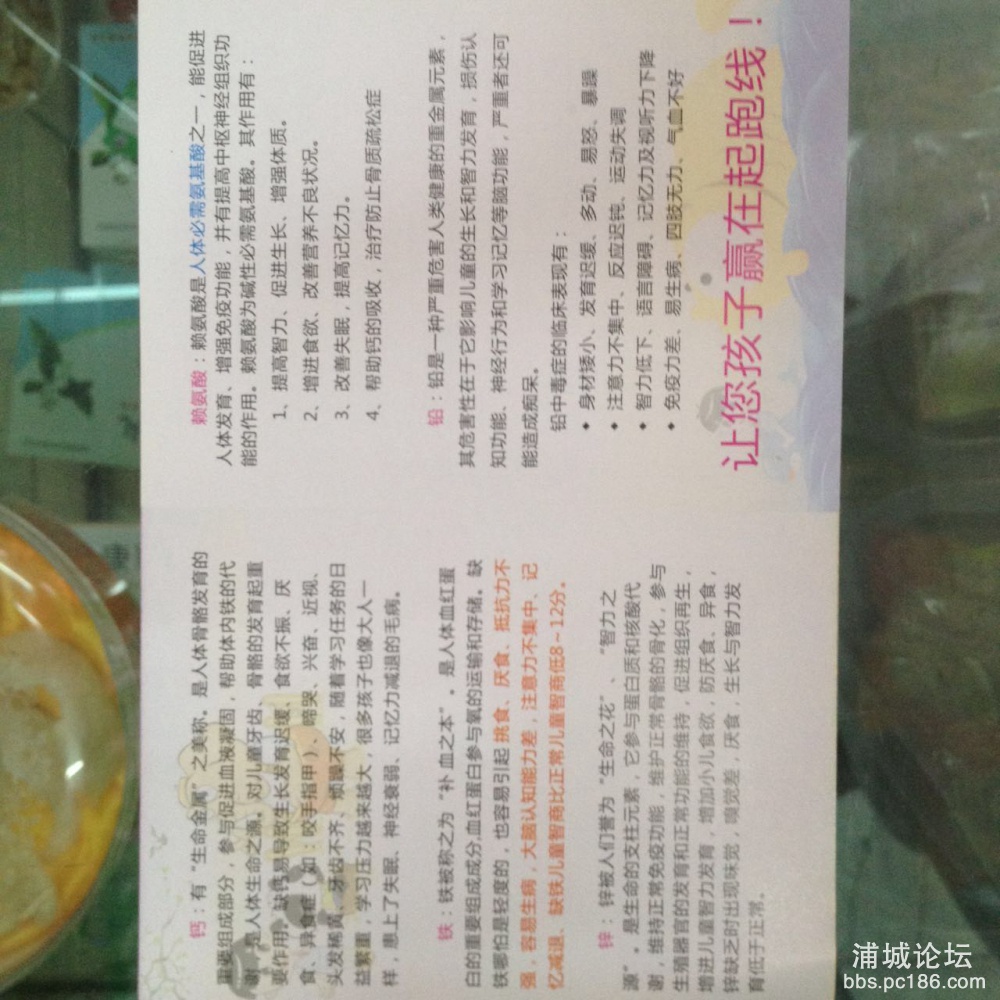 钙：有“生命金属”之美称。是人体骨骼发育的
重要组成部分，参与促进血液凝固，帮助体内铁的代
谢，是人体生命之源。对儿童牙齿、骨骼的发育起重
要作用。缺钙易导致生长发育迟缓、食欲不振、厌
食、异食症（如：咬手指甲）、啼哭、兴奋、近视、
头发稀黄、牙齿不齐、烦躁不安，随着学习任务的日
益繁重，学习压力越来越大，很多孩子也像大人一
样，患上了失眠、神经衰弱、记忆力减退的毛病。
铁：铁被称之为“补血之本”。是人体血红蛋
白的重要组成成分,血红蛋白参与氧的运输和存储。缺
铁哪怕是轻度的，也容易引起 挑食、厌食、抵抗力不
强，容易生病，大脑认知能力差，注意力不集中、记
忆减退、缺铁儿童智商比正常儿童智商低8～12分。
锌：锌被人们誉为“生命之花”、“智力之
源”。是生命的支柱元素，它参与蛋白质和核酸代
谢，维持正常免疫功能，维护正常骨骼的骨化，参与
生殖器官的发育和正常功能的维持，促进组织再生，
增进儿童智力发育，增加小儿食欲，防厌食、异食，
锌缺乏时出现味觉，嗅觉差，厌食，生长与智力发
育低于正常。
赖氨酸：赖氨酸是人体必需氨基酸之一，能促进
人体发育、增强免疫功能，并有提高中枢神经组织功
能的作用。赖氨酸为碱性必需氨基酸。其作用有：
1、提高智力、促进生长、增强体质。
2、增进食欲、改善营养不良状况。
3、改善失眠，提高记忆力。
4、帮助钙的吸收，治疗防止骨质疏松症
铅：铅是一种严重危害人类健康的重金属元素，
其危害性在于它影响儿童的生长和智力发育，损伤认
知功能、神经行为和学习记忆等脑功能，严重者还可
能造成痴呆。
铅中毒症的临床表现有：
◆ 身材矮小、发育迟缓、多动、易怒、暴躁
◆ 注意力不集中、反应迟钝、运动失调
◆ 智力低下、语言障碍、记忆力及视听力下降
◆ 免疫力差、易生病、四肢无力、气血不好
让您孩子赢在起跑线！
浦城论坛
bbs.pc186.com